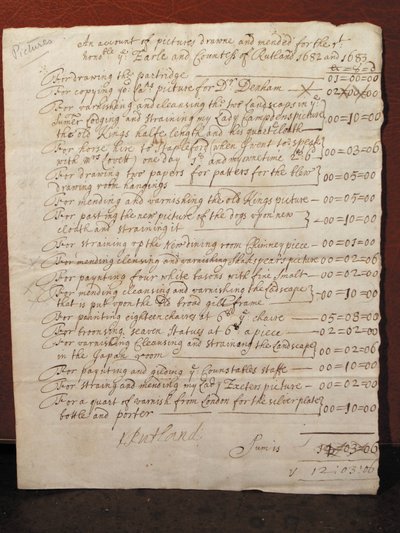 Pictures
An account of pictures drawne and mended for the rt
honoble ye Earle and Countess of Rutland 1682 and 1683
For drawing the partridge 01=00=00
For copying yo: Lapps picture for Dr Denham 02=00=00
For varnishing and cleansing the two Landscaps in ye
Inner Lodging and straining my Lady Campdens picture
the old Kings halfe length and his quest cloth 00=10=00
For horse hire to Stapleford (when I went to speak
with Mrs Lovett) one day 1s and my owne time 2s 6d 00=03=06
For drawing two papers for patters for the blew
drawing room hangings 00=05=00
For mending and varnishing the old Kings picture 00=05=00
For pasting the new picture of the dogs upon new
cloath and straining it 00=10=00
For straining up the New dining room Chimney piece 00=01=00
For mending clensing and varnishing Shakspears picture 00=02=06
For paynting four white basons with fine smalt 00=02=00
For mending cleansing and varnishing the Landscape
that is put upon the broad gilt frame 00=10=00
For painting eighteen chaires at 6s ye chaire 05=08=00
For bronsing seaven Status at 6s a piece 02=02=00
For varnishing Cleansing and straining the Landscape
in the Japan room 00=02=06
For paynting and gilding ye Counstables staffe 00=10=00
For straining and mending my Lady Exeters picture 00=02=00
For a quart of varnish from London for the silver plate
bottle and porter 00=10=00
Rutland
Sum is 14=03=06
12:03:06